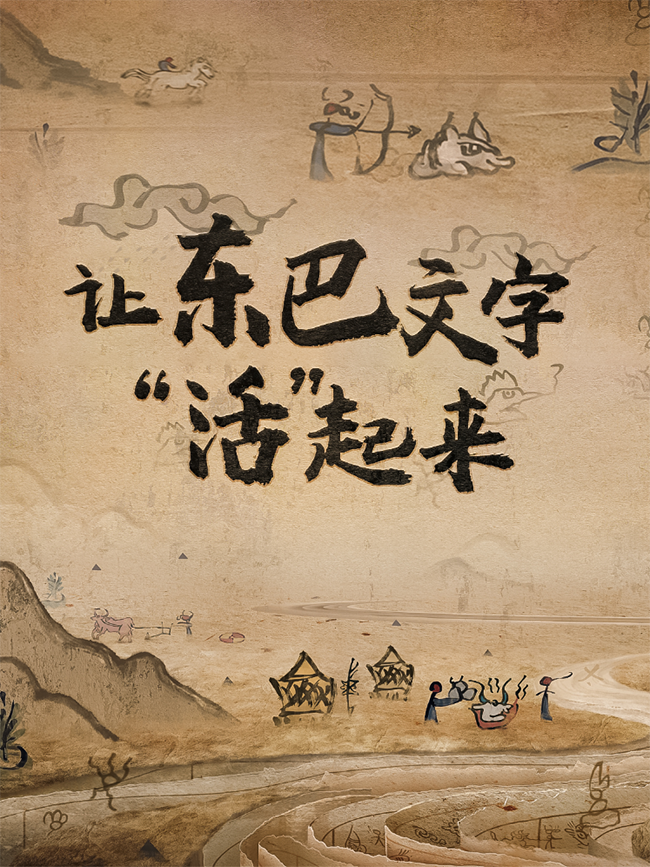 让东巴文字
“活”起来